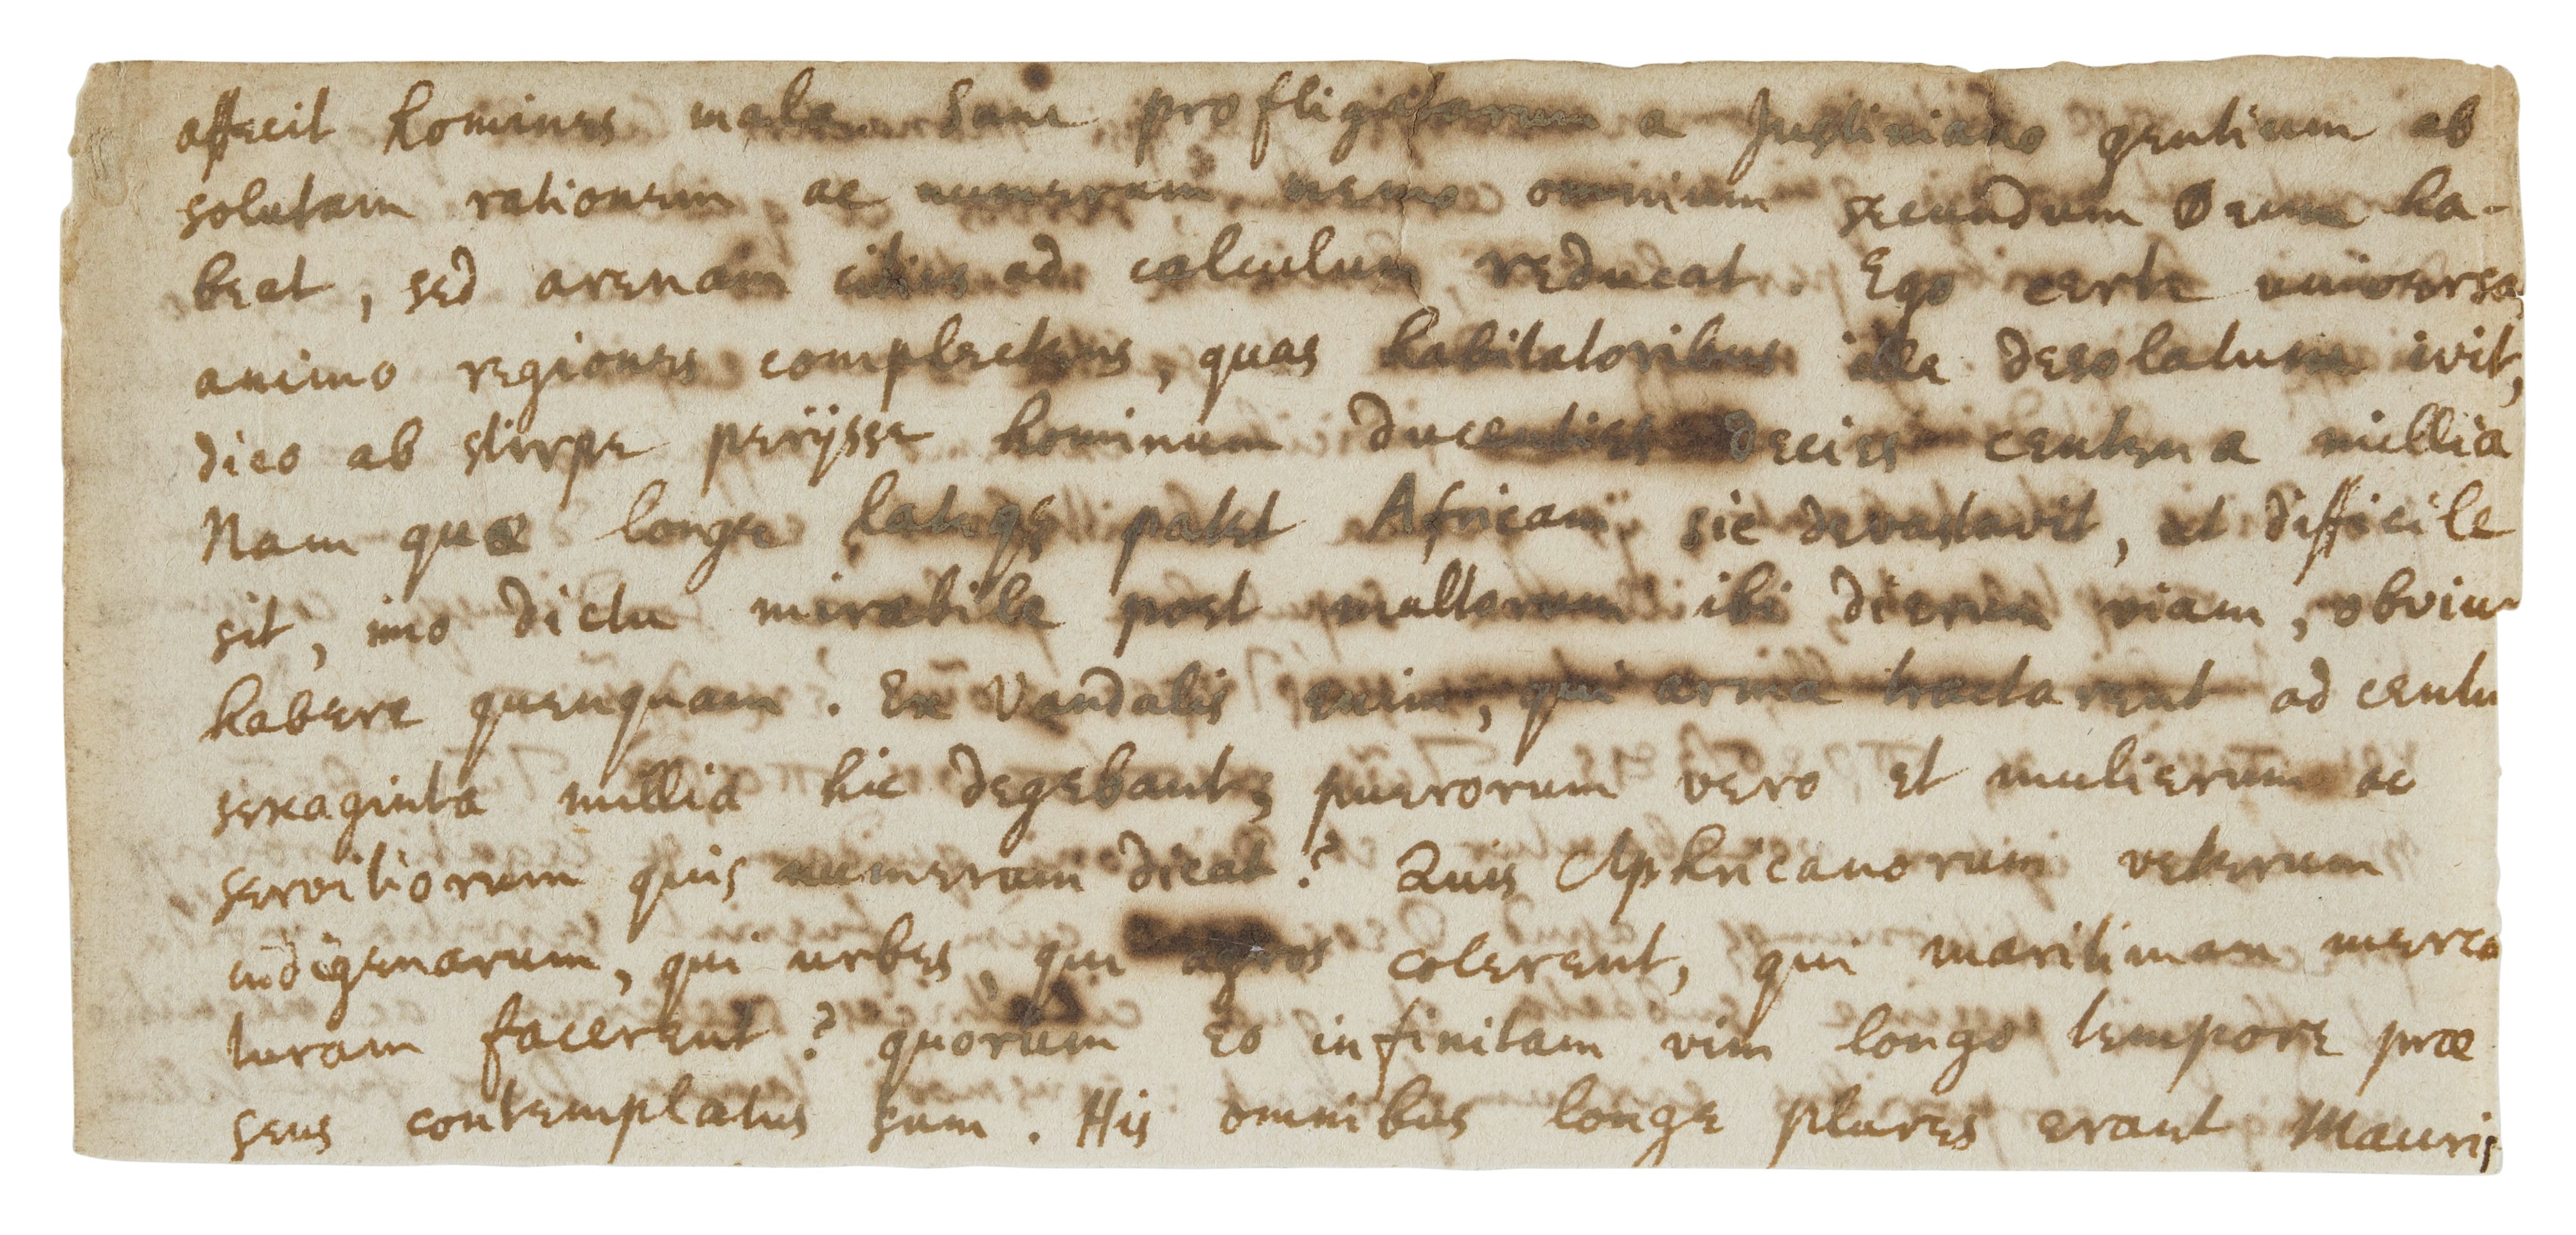 affecit homines mala. Sane profligatarum a Justiniano gentium ab
solutam rationem ac numerum nemo omnium secundum Deum ha-
beat, sed arenam citius ad calculum reducat. Ego certe universas
animo regiones complectens, quas habitatoribus ille desolatum ivit,
dico ab stirpe perijsse hominum ducenties decies centena millia
Nam quæ longe lateqs patet Africam sic devastavit, ut difficile
sit, imo dictu mirabile post multorum ibi dierum viam, obviu
habere quenquam. Ex Vandalis enim, qui arma tractarent ad centu
sexaginta millia hic degebant; puerorum vero et mulierum ac
servitiorum quis numerum dicat? Quis Aphricanorum veterum
indigenarum, qui urbes, qui agros colerent, qui maritimam merca
turam facerent? quorum eo infinitam vim longo tempore præ
sens contemplatus sum. His omnibus longe plures erant Mauris